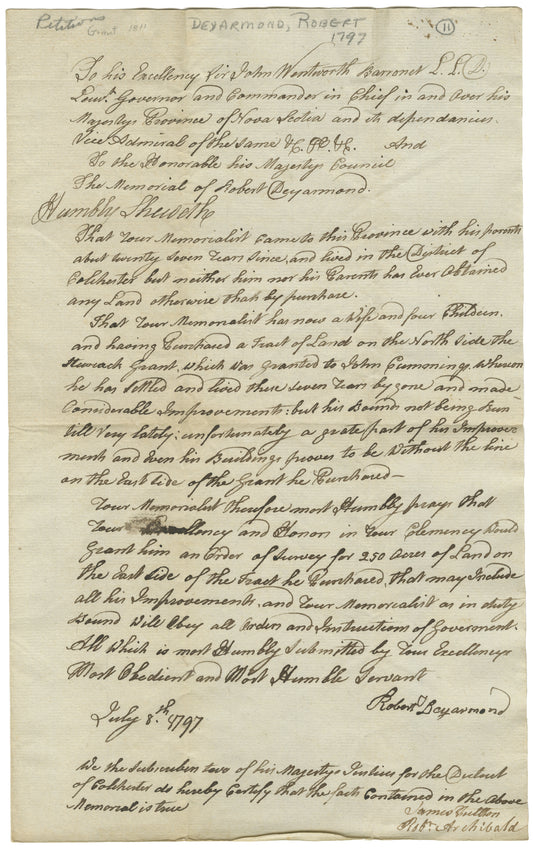 Petitions
Grant 1811
DEYARMOND, ROBERT
1797
11
To his Excellency Sir John Wentworth Barronet L. L. D.
Lieut. Governor and Commander in Chief in and Over his
Majestys Province of Nova Scotia and its dependancies.
Vice Admiral of the same &C. &C. &C. And
To the Honorable his Majestys Council
The Memorial of Robert Deyarmond.
Humbly Sheweth
That Your Memorialist Came to this Province with his parents
about twenty Seven Years Since, and lived in the District of
Colchester but neither him nor his Parents has Ever Obtained
any Land otherwise than by purchase.
That Your Memorialist has now a Wife and four Children.
and having Purchased a Tract of Land on the North Side the
Stewiack Grant, which was Granted to John Cummings. Whereon
he has Settled and lived these Seven Years by gone and made
Considerable Improvements: but his Bounds not being Run
till Very lately: unfortunately a grate part of his Improve-
ments and Even his Buildings proves to be Without the line
on the East Side of the Grant he Purchased—
Your Memorialist therefore most Humbly prays that
Your Excellency and Honors in Your Clemency Would
Grant him an Order of Survey for 250 Acres of Land on
the East Side of the Tract he Purchased, that may Include
all his Improvements, and Your Memorialist as in duty
Bound Will Obey all Orders and Instructions of Goverment.
All Which is most Humbly Submitted by Your Excellencys
Most Obedient and Most Humble Servant
Robert Deyarmond
July 8.th 1797
We the Subscribers two of his Majestys Justices for the District
of Colchester do hereby Certify that the facts Contained in the Above
Memorial is true
James Fulton
Robt. Archibald